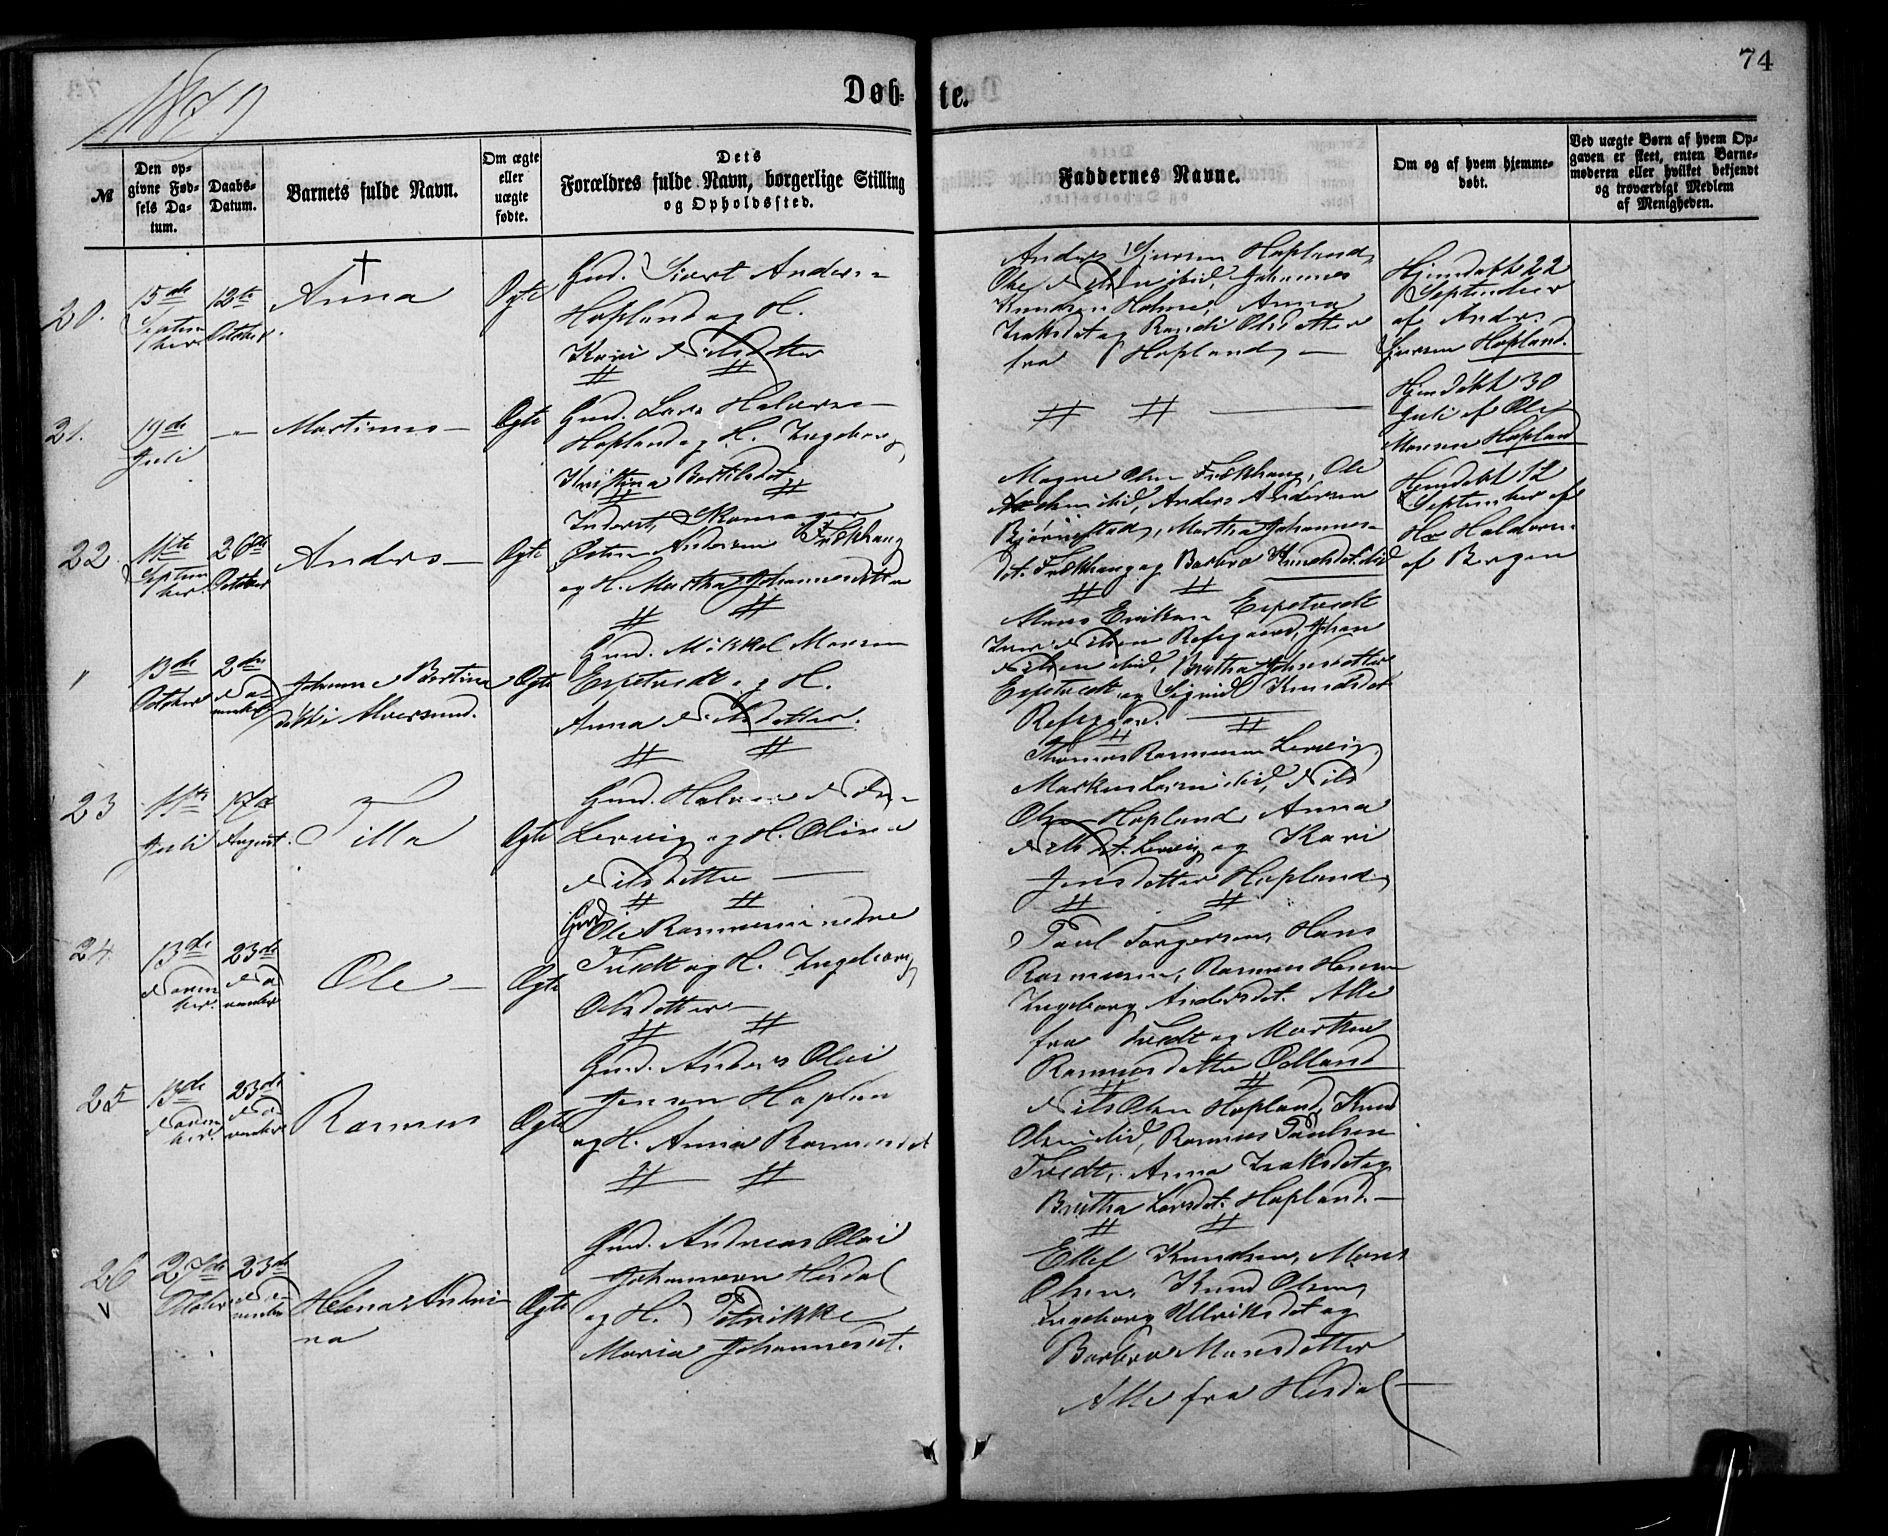 1879
Døb-
te.
74
№
Den op-
givne Fød-
sels Da-
tum.
Daabs-
Datum.
Barnets fulde Navn.
Om ægte
eller
uægte
fødte.
Dets
Forældres fulde Navn, borgerlige Stilling
og Opholdssted.
Faddernes Navne.
Om og af hvem hjemme-
døbt.
Ved uægte Børn af hvem Op-
gaven er skeet, enten Barne-
moderen eller hvilket bekjendt
og troværdigt Medlem
af Menigheden.
20.
15de
Septem
ber
12te
October.
Anna
Ægte
Gmd. Sivert Anders-
Hopland og H.
Kari Nilsdatter
Anders Hopland,
Ole Nilsen ibid, Johannes
Knudsen Holme, Anna
Isaksdat og Randi Olsdatter
fra Hopland
Hjemdøbt 22
September
af Anders
Hopland.
21.
19de
Juli
Martinus
Ægte
Gmd. Lars Halvors-
Hopland og H. Ingeborg
Kristina Bertilsdat
Hjemdøbt 30
Juli af Ole
Monsen Hopland
22
11te
Septem
ber
26de
October
Anders
Ægte
Inderst, Skomager
Østen Andersen
og H. Martha Johannesdatter
Magne Olsen Ole
ibid, Anders Andersen
Martha Johannes-
dt. og Barbro Knudsdt. ibid
Hjemdøbt 12
September af
Halvorsen
af Bergen
"
13de
October
2den
No-
vember
Johanne Bertina
døbt i Alversund.
Ægte
Gmd. Mikkel Monsen
Espetvedt og H.
Anna Nilsdatter.
Mons Eriksen Espetvedt
Iver Nilsen Johan
Nilsen ibid, Britha Johannesdatter
Espetvedt og Sigrid Knudsdat
23
11te
Juli
17de
August.
Tilla
Ægte
Gmd. Halvor Nils-
Lervig og H. Olina
Nilsdatter
Thomas Rasmussen Lervig
Markus Larsen ibid, Nils
Olsen Hopland, Anna
Nilsdt. Lervig og Kari
Jensdatter Hopland
24
13de
Novem
ber.
23de
No
vember
Ole
Ægte
Gmd
Ole Rasmussen nedre
Tvedt og H. Ingeborg
Olsdatter
Paul Torgersen, Hans
Rasmussen, Rasmus Hansen
Ingeborg Andersdt. Alle
fra Tvedt og Martha
Rasmusdatter
25
13de
Novem
ber.
23de
No-
vember
Rasmus
Ægte
Gmd. Anders Olai
Jensen Hoplan
og H. Anna Rasmusdat
Nils Olsen Hopland, Knud
Olsen ibid, Rasmus Paulsen
Tvedt, Anna Isaksdat og
Britha Larsdat. Hopland.
26
27de
October
23de
No-
vember
Helena Andri-
na
Ægte
Gmd. Andreas Olai
Johannesen Hisdal
og H. Petrikke
Maria Johannesdt.
Ellef Knudsen, Mons
Olsen, Knud Olsen,
Ingeborg Ulriksdat og
Barbro Monsdatter
Alle fra Hisdal